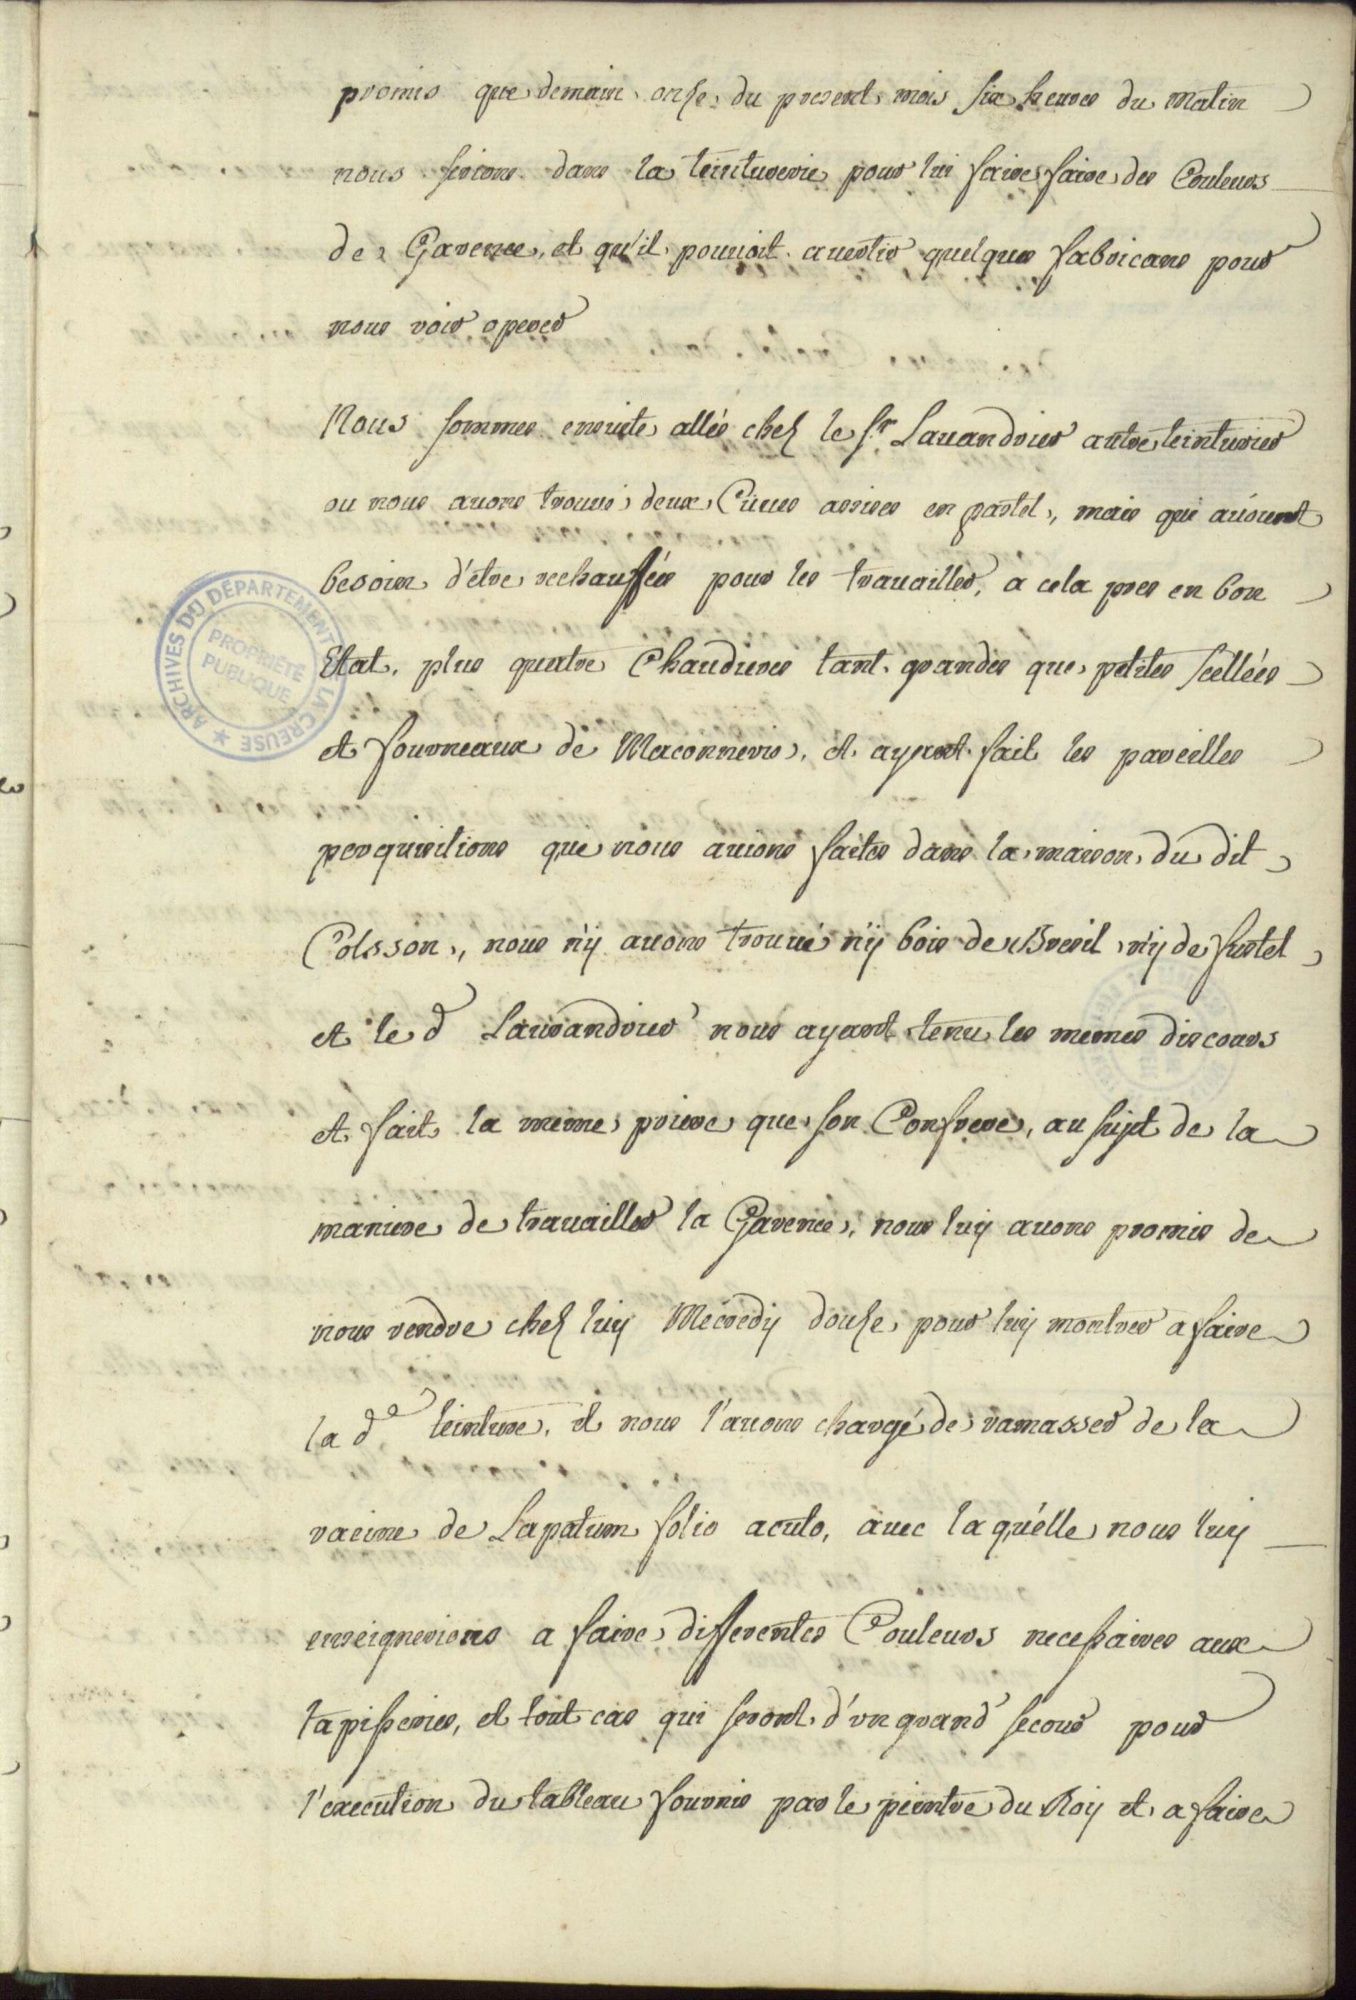 promis que demain onse du present mois six heures du Matin
nous serions dans la teinturerie pour lui faire faire des Couleurs
de Garence, et qu'il pouroit auertir quelques fabricans pour
nous voir operer
Nous sommes ensuite allés chez le Sr. Lauandrier autre teinturier
ou nous auons trouué deux Cuues assises en pastel, mais qui auoient
besoin d'etre rechauffées pour les trauailler, a cela pres en bon
Etat, plus quatre Chaudieres tant grandes que petites scellées
et fourneaux de Maconnerie, et ayant fait les pareilles
perquisitions que nous auions faites dans la maison du dit
Colsson, nous n'ÿ auons trouué n'ÿ bois de Bresil n'ÿ de fustel
et le d Lauandrier nous ayant tenu les memes discours
et fait la meme priere que son Confrere, au sujet de la
maniere de trauailler la Garence, nous luÿ auons promis de
nous rendre chez luÿ Mécredÿ douse pour luÿ montrer a faire
la de. teinture, et nous l'auons chargé de ramasser de la
racine de Lapatum folio acuto, auec laquélle nous luÿ
enseignerions a faire differentes Couleurs necessaires aux
tapisseries, et tout cas qui seront d'vn grand secour pour
l'execution du tableau fournis par le peintre du Roÿ et a faire
ARCHIVES DU DÉPARTEMENT DE LA CREUSE
PROPRIÉTÉ
PUBLIQUE